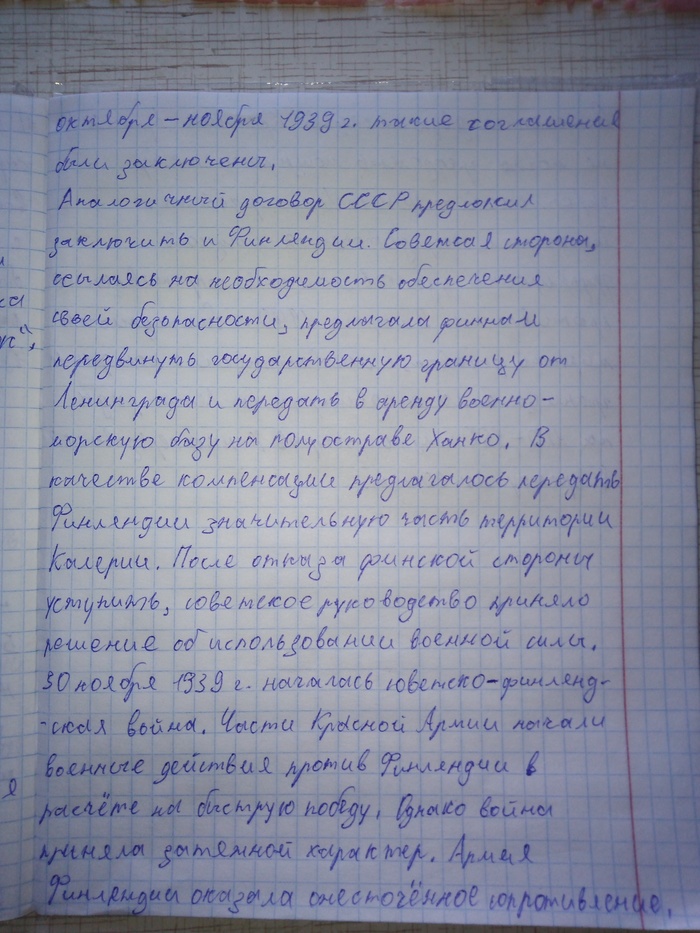 октября – ноября 1939 г. такие соглашения
были заключены.
Аналогичный договор СССР предложил
заключить и Финляндии. Советсая сторона,
ссылаясь на необходимость обеспечения
своей безопасности, предлагала финнам
передвинуть государственную границу от
Ленинграда и передать в аренду военно-
морскую базу на полуострове Ханко. В
качестве компенсации предлагалось передать
Финляндии значительную часть территории
Калерии. После отказа финской стороны
уступить, советское руководство приняло
решение об использовании военной силы.
30 ноября 1939 г. началась советско-финлянд-
-ская война. Части Красной Армии начали
военные действия против Финляндии в
расчёте на быструю победу. Однако война
приняла затяжной характер. Армия
Финляндии оказала ожесточённое сопротивление.